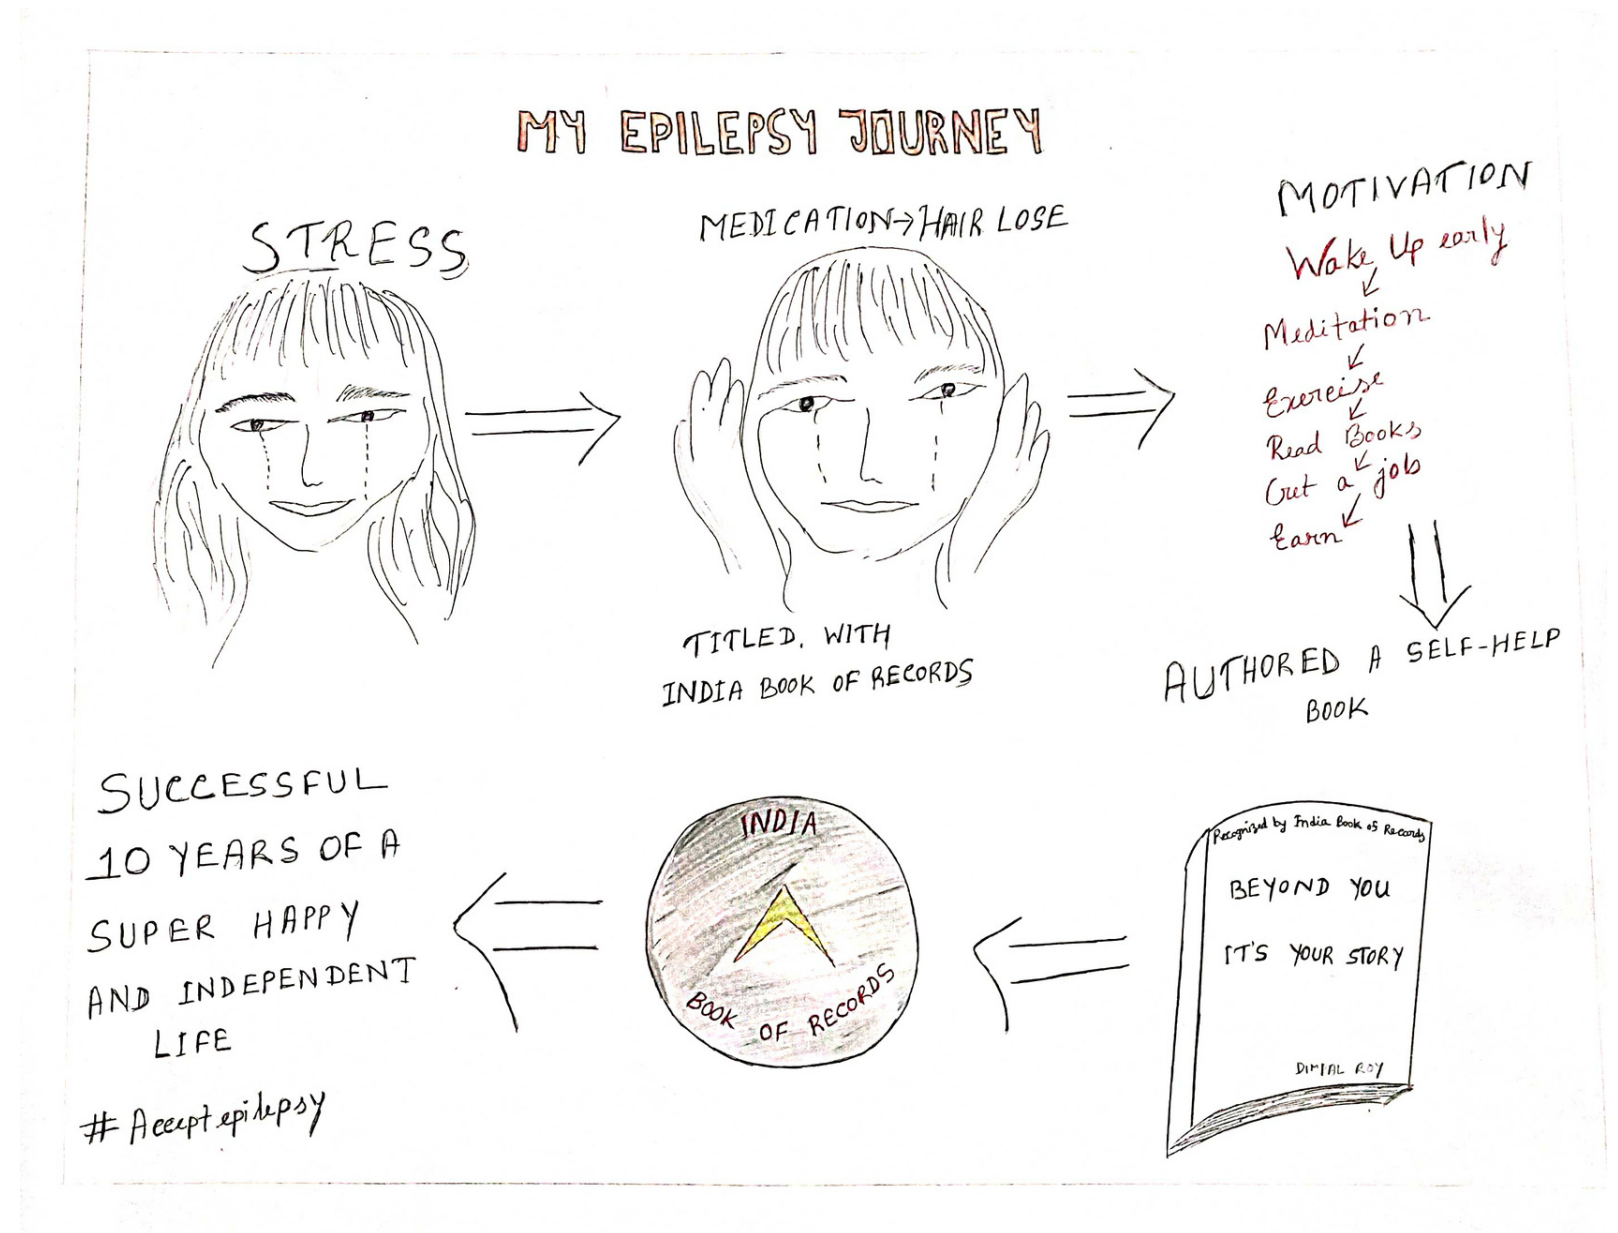 MY EPILEPSY JOURNEY
STRESS
MEDICATION→HAIR LOSE
MOTIVATION
Wake Up early
Meditation
Exercise
Read Books
Get a job
Earn
AUTHORED A SELF-HELP
BOOK
Recognized by India Book of Records
BEYOND YOU
IT'S YOUR STORY
ROY
TITLED. WITH
INDIA BOOK OF RECORDS
INDIA
BOOK OF RECORDS
SUCCESSFUL
10 YEARS OF A
SUPER HAPPY
AND INDEPENDENT
LIFE
#Acceptepilepsy